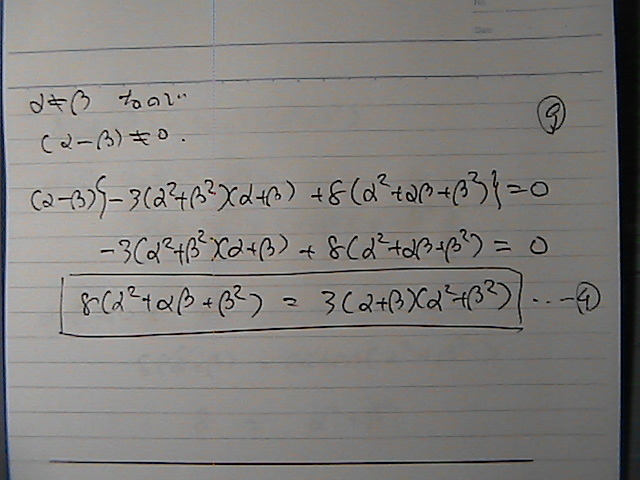 α≠β なので
⑨
(α-β)≠0.
(α-β){-3(α²+β²)(α+β) +8(α²+αβ+β²)}=0
-3(α²+β²)(α+β) + 8(α²+αβ+β²) = 0
8(α²+αβ+β²) = 3(α+β)(α²+β²) ...-④